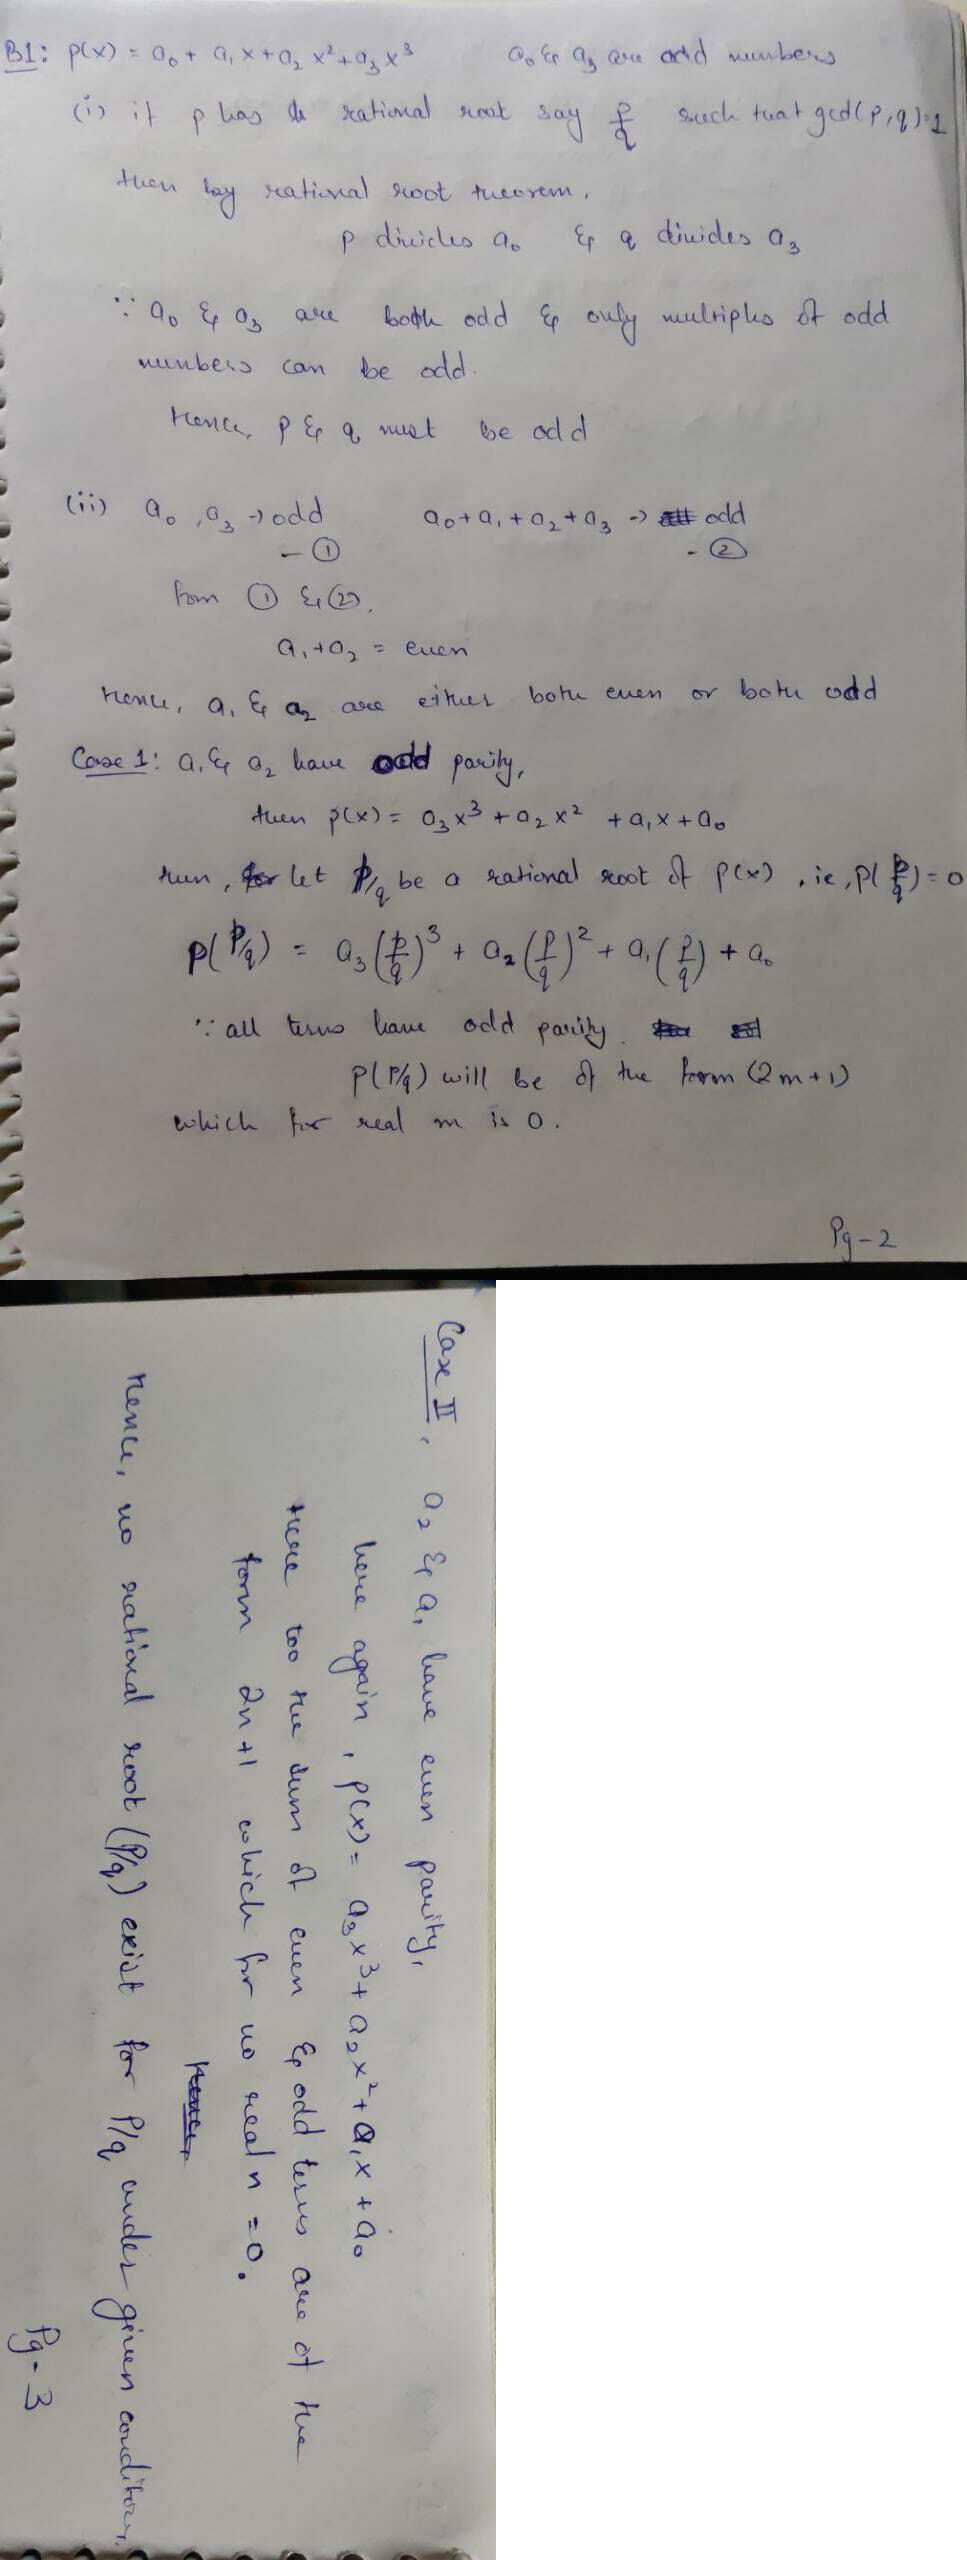 B1: p(x) = a₀ + a₁x + a₂x² + a₃x³ a₀ & a₃ are odd numbers
(i) if p has rational root say p/q such that gcd(p,q)=1
then by rational root theorem,
p divides a₀ & q divides a₃
∵ a₀ & a₃ are both odd & only multiples of odd
numbers can be odd.
Hence, p & q must be odd
(ii) a₀, a₃ → odd a₀+a₁+a₂+a₃ → odd
- ① - ②
from ① & ②,
a₁+a₂ = even
Hence, a₁ & a₂ are either both even or both odd
Case 1: a₁ & a₂ have odd parity,
then p(x) = a₃x³ + a₂x² + a₁x + a₀
then, let p/q be a rational root of p(x), ie, p(p/q) = 0
p(p/q) = a₃(p/q)³ + a₂(p/q)² + a₁(p/q) + a₀
∵ all terms have odd parity.
p(p/q) will be of the form (2m+1)
which for real m is 0.
Pg-2
Case II, a₂ & a₁ have even parity,
here again, p(x) = a₃x³ + a₂x² + a₁x + a₀
Here too the sum of even & odd terms are of the
form 2n+1 which for no real n = 0.
Hence, no rational root (p/q) exist for p/q under given conditions.
Pg-3